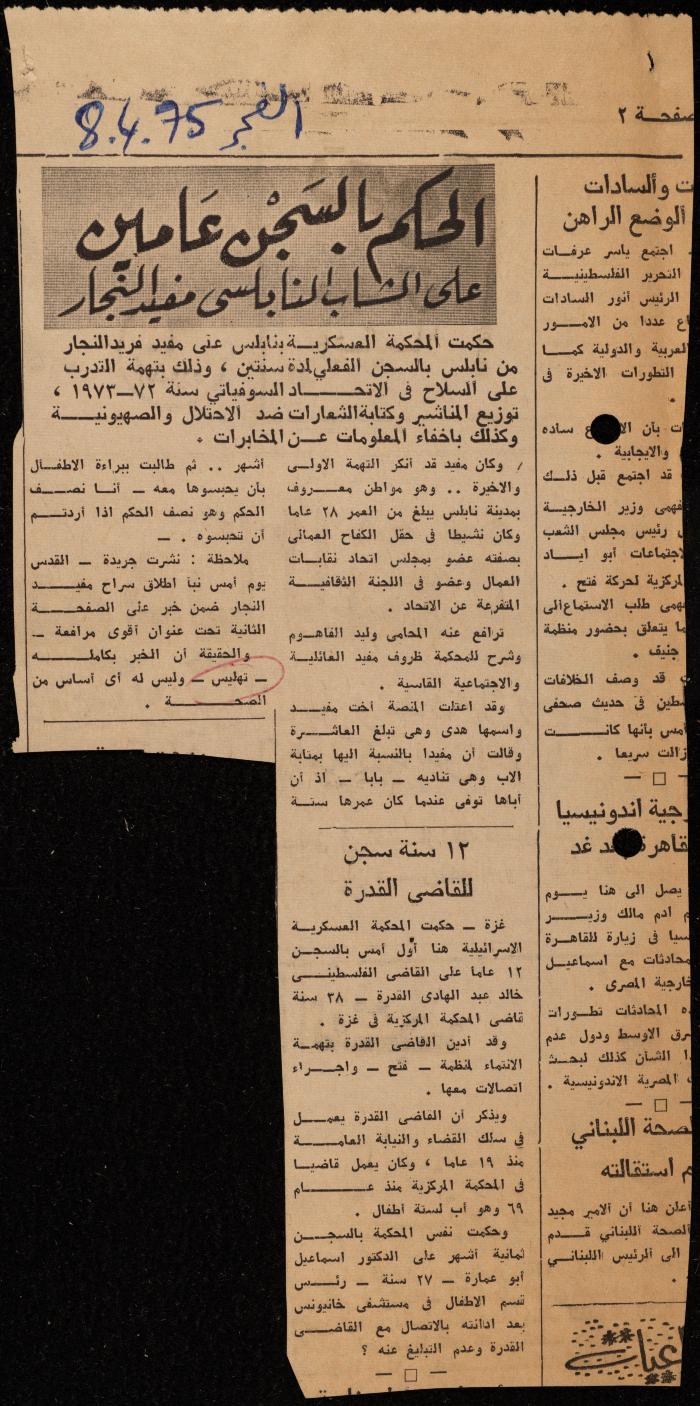 ١
صفحة ٢
الفجر 8.4.75
الحكم بالسَجْن عَامين
على الشاب النابلسى مفيد النجار
حكمت المحكمة العسكرية بنابلس على مفيد فريد النجار
من نابلس بالسجن الفعلي لمدة سنتين ، وذلك بتهمة التدرب
على السلاح فى الاتحاد السوفياتي سنة ٧٢—١٩٧٣ ،
توزيع المناشير وكتابة الشعارات ضد الاحتلال والصهيونية
وكذلك باخفاء المعلومات عن المخابرات .
وكان مفيد قد أنكر التهمة الاولى
والاخيرة .. وهو مواطن معروف
بمدينة نابلس يبلغ من العمر ٢٨ عاما
وكان نشيطا فى حقل الكفاح العمالى
بصفته عضو بمجلس اتحاد نقابات
العمال وعضو فى اللجنة الثقافية
المتفرعة عن الاتحاد .
ترافع عنه المحامى وليد الفاهوم
وشرح للمحكمة ظروف مفيد العائلية
والاجتماعية القاسية .
وقد اعتلت المنصة أخت مفيد
واسمها هدى وهى تبلغ العاشرة
وقالت أن مفيدا بالنسبة اليها بمثابة
الاب وهى تناديه — بابا — اذ أن
أباها توفى عندما كان عمرها ستة
أشهر .. ثم طالبت ببراءة الاطفال
بأن يحبسوها معه — أنا نصف
الحكم وهو نصف الحكم اذا أردتم
أن تحبسوه . —
ملاحظة : نشرت جريدة — القدس
يوم أمس نبأ اطلاق سراح مفيد
النجار ضمن خبر على الصفحة
الثانية تحت عنوان أقوى مرافعة —
والحقيقة أن الخبر بكامله
— تهليس — وليس له أى أساس من
الصحة .
١٢ سنة سجن
للقاضى القدرة
غزة — حكمت المحكمة العسكرية
الاسرائيلية هنا أول أمس بالسجن
١٢ عاما على القاضى الفلسطينى
خالد عبد الهادى القدرة — ٣٨ سنة
قاضى المحكمة المركزية فى غزة .
وقد أدين القاضى القدرة بتهمة
الانتماء لمنظمة — فتح — واجراء
اتصالات معها .
ويذكر أن القاضى القدرة يعمل
فى سلك القضاء والنيابة العامة
منذ ١٩ عاما ، وكان يعمل قاضيا
فى المحكمة المركزية منذ عام
٦٩ وهو أب لستة أطفال .
وحكمت نفس المحكمة بالسجن
ثمانية أشهر على الدكتور اسماعيل
أبو عمارة — ٢٧ سنة — رئس
قسم الاطفال فى مستشفى خانيونس
بعد ادانته بالاتصال مع القاضى
القدرة وعدم التبليغ عنه ؟
والسادات
الوضع الراهن
اجتمع ياسر عرفات
التحرير الفلسطينية
الرئيس أنور السادات
عددا من الامور
العربية والدولية كما
التطورات الاخيرة فى
بأن ساده
والايجابية .
قد اجتمع قبل ذلك
فهمى وزير الخارجية
رئيس مجلس الشعب
اجتماعات أبو اياد
المركزية لحركة فتح .
طلب الاستماع الى
يتعلق بحضور منظمة
جنيف .
قد وصف الخلافات
فى حديث صحفى
أمس بأنها كانت
زالت سريعا .
اندونيسيا
غد
يصل الى هنا يوم
ادم مالك وزير
فى زيارة للقاهرة
محادثات مع اسماعيل
المصرى .
المحادثات تطورات
الاوسط ودول عدم
الشأن كذلك لبحث
المصرية الاندونيسية .
اللبناني
استقالته
أعلن هنا أن الامير مجيد
الصحة اللبناني قدم
الى الرئيس اللبناني
.